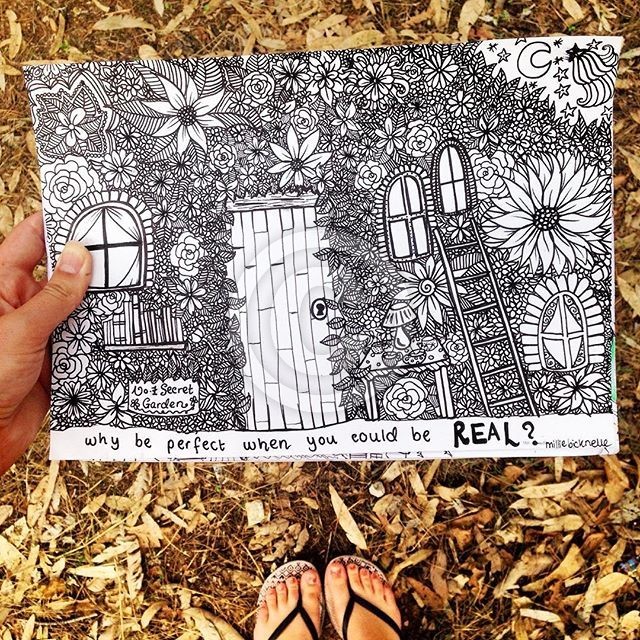 Secret
Garden
why be perfect when you could be REAL?
milliebicknelle